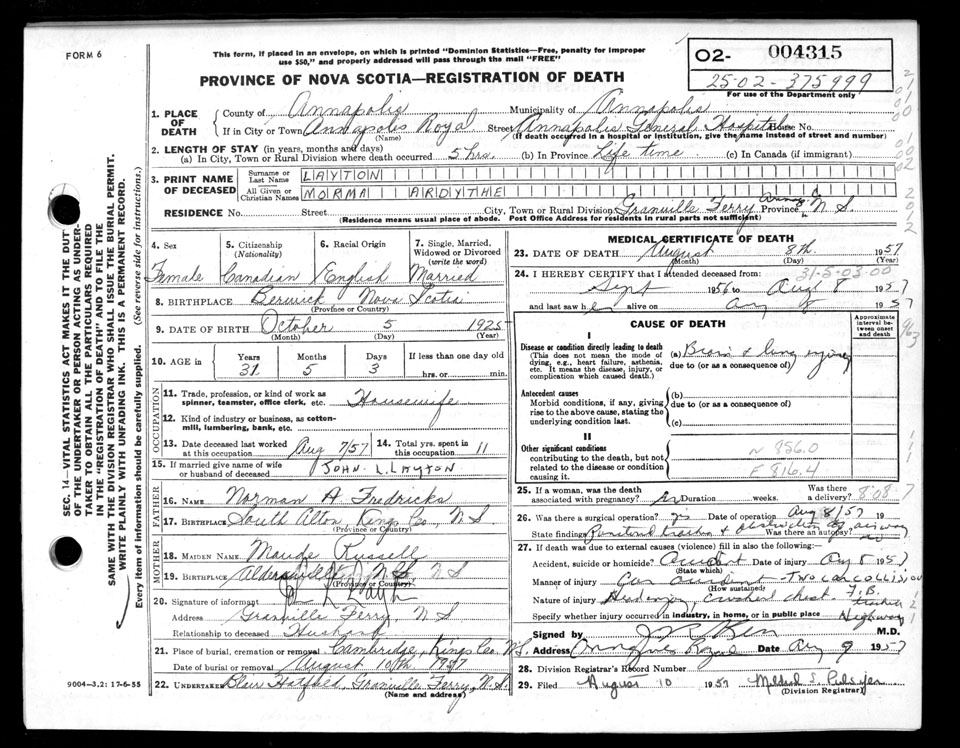 FORM 6
This form, if placed in an envelope, on which is printed "Dominion Statistics—Free, penalty for improper
use $50," and properly addressed will pass through the mail "FREE"
PROVINCE OF NOVA SCOTIA—REGISTRATION OF DEATH
02- 004315
25-02-375999
For use of the Department only
1. PLACE OF DEATH
County of Annapolis Municipality of Annapolis
If in City or Town Annapolis Royal Street Annapolis General Hospital House No.
(Name) (If death occurred in a hospital or institution, give the name instead of street and number)
2. LENGTH OF STAY (in years, months and days)
(a) In City, Town or Rural Division where death occurred 5 hrs. (b) In Province Life time (c) In Canada (if immigrant)
3. PRINT NAME OF DECEASED
Surname or Last Name LAYTON
All Given or Christian Names MORMA ARDYTHE
RESIDENCE No. Street City, Town or Rural Division Granville Ferry Province N.S.
(Residence means usual place of abode. Post Office Address for residents in rural parts not sufficient)
4. Sex
Female
5. Citizenship (Nationality)
Canadian
6. Racial Origin
English
7. Single, Married, Widowed or Divorced (write the word)
Married
8. BIRTHPLACE Berwick Nova Scotia
(Province or Country)
9. DATE OF BIRTH October 5 1925
(Month) (Day) (Year)
10. AGE in Years Months Days If less than one day old
31 5 3 hrs. or min.
OCCUPATION
11. Trade, profession, or kind of work as spinner, teamster, office clerk, etc. Housewife
12. Kind of industry or business, as cotton-mill, lumbering, bank, etc.
13. Date deceased last worked at this occupation Aug 7/57 14. Total yrs. spent in this occupation 11
15. If married give name of wife or husband of deceased JOHN L. LAYTON
FATHER
16. NAME Norman A Fredricks
17. BIRTHPLACE South Alton, Kings Co., N.S.
(Province or Country)
MOTHER
18. MAIDEN NAME Maude Russell
19. BIRTHPLACE N.S. N S
(Province or Country)
20. Signature of informant
Address Granville Ferry, N S
Relationship to deceased Husband
21. Place of burial, cremation or removal Cambridge, Kings Co. N.S.
Date of burial or removal August 10th 1957
22. UNDERTAKER Blair Hatfield, Granville Ferry, N.S.
(Name and address)
9004-3.2: 17-6-55
MEDICAL CERTIFICATE OF DEATH
23. DATE OF DEATH August 8th 1957
(Month) (Day) (Year)
31-5-03-00
24. I HEREBY CERTIFY that I attended deceased from:
Sept 1956 to Aug 8 1957
and last saw her alive on Aug 8 1957
CAUSE OF DEATH
Approximate interval between onset and death
I
Disease or condition directly leading to death
(This does not mean the mode of dying, e.g., heart failure, asthenia, etc. It means the disease, injury, or complication which caused death.)
(a) Brain & lung injury
due to (or as a consequence of)
Antecedent causes
Morbid conditions, if any, giving rise to the above cause, stating the underlying condition last.
(b)
due to (or as a consequence of)
(c)
II
Other significant conditions
contributing to the death, but not related to the disease or condition causing it.
N 856.0
E 816.4
25. If a woman, was the death associated with pregnancy? No Duration weeks. Was there a delivery?
808 7
26. Was there a surgical operation? yes Date of operation Aug 8/57 19
State findings obstruction of airway Was there an autopsy? no
27. If death was due to external causes (violence) fill in also the following:—
Accident, suicide or homicide? Accident Date of injury Aug 8 1957
(State which)
Manner of injury Car accident - TWO CAR COLLISION
(How sustained)
Nature of injury Head injury, crushed chest.
Specify whether injury occurred in industry, in home, or in public place Highway
Signed by M.D.
Address Annapolis Royal Date Aug 9 1957
28. Division Registrar's Record Number
29. Filed August 10 1957 Mildred
(Division Registrar)
SEC. 14—VITAL STATISTICS ACT MAKES IT THE DUTY
OF THE UNDERTAKER OR PERSON ACTING AS UNDER-
TAKER TO OBTAIN ALL THE PARTICULARS REQUIRED
IN THE "REGISTRATION OF DEATH" AND TO FILE THE
SAME WITH THE DIVISION REGISTRAR WHO SHALL ISSUE THE BURIAL PERMIT.
WRITE PLAINLY WITH UNFADING INK. THIS IS A PERMANENT RECORD.
Every item of information should be carefully supplied. (See reverse side for instructions.)